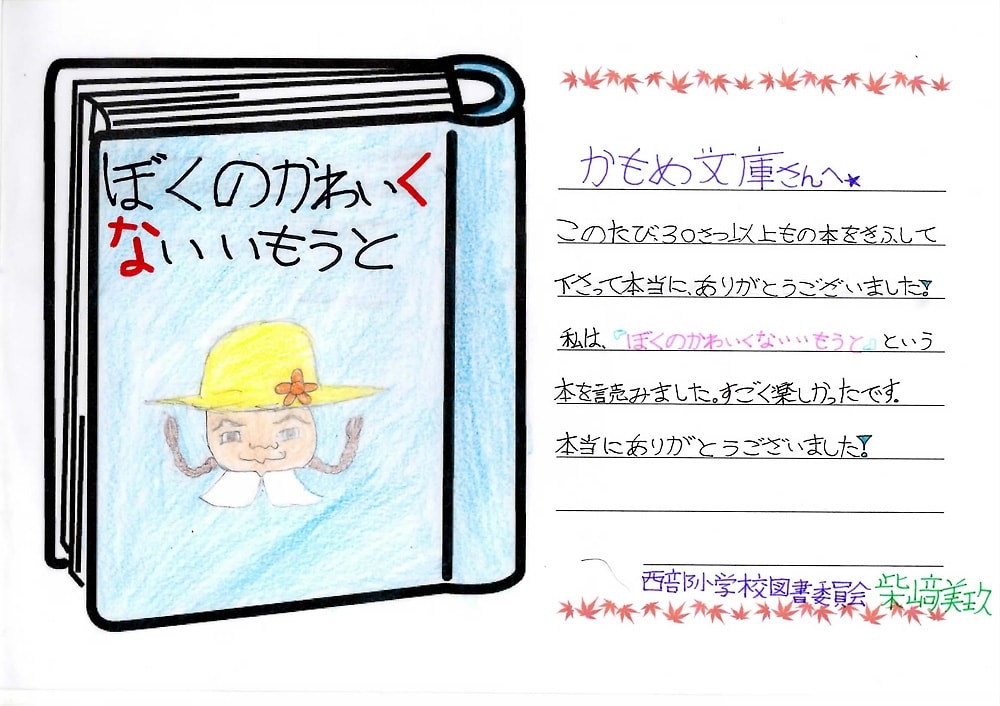 ぼくのかわいく
ないいもうと
かもめ文庫さんへ★
このたび、30さつ以上もの本をきふして
下さって本当に、ありがとうございました!
私は、『ぼくのかわいくないいもうと』という
本を読みました。すごく楽しかったです。
本当にありがとうございました!
西部小学校図書委員会 柴﨑美玖